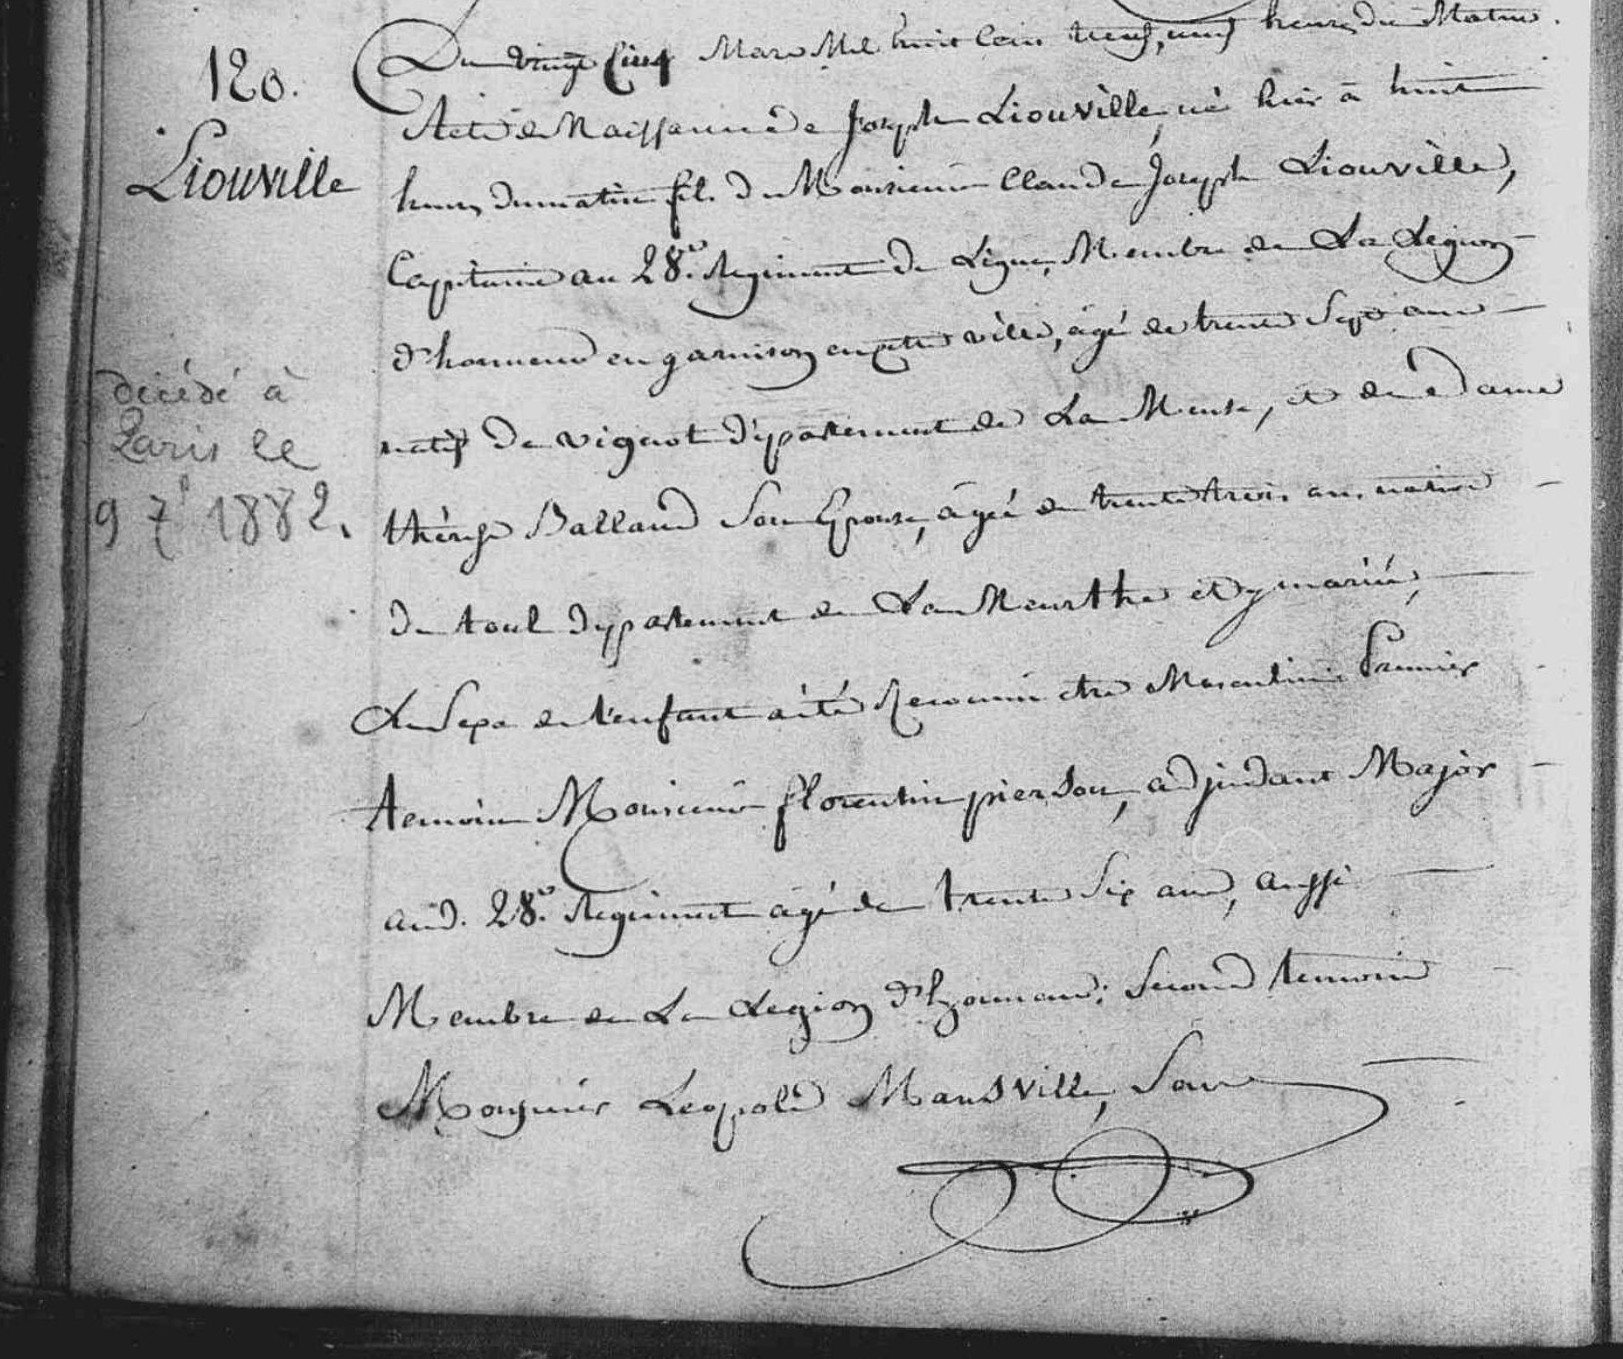 120.
Liouville
décédé à
Paris le
9 7e 1882.
Du vingt Cinq Mars Mil huit Cent neuf, neuf heures du Matin.
Acte de Naissance de Joseph Liouville, né hier à huit
heures du matin fils de Monsieur Claude Joseph Liouville,
Capitaine au 28e. Regiment de Ligne, Membre de La Legion
d'honneur en garnison en cette ville, âgé de trente Sept ans
natif de vignot département de La Meuse, et de dame
thérèse Balland Son Epouse, âgée de trente trois ans native
de toul département de La Meurthe et y mariés,
Le Sexe de l'enfant a été Reconnu etre Masculin. Premier
temoin Monsieur florentin pierson, adjudant Major
aud. 28e. Regiment âgé de trente Six ans, aussi
Membre de La Legion d'honneur; Second temoin
Monsieur Leopold Mansville, Sous